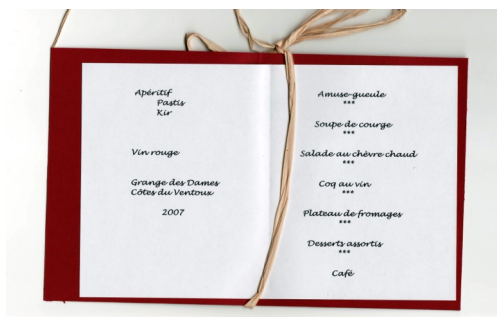 Apéritif
Pastis
Kir
Vin rouge
Grange des Dames
Côtes du Ventoux
2007
Amuse-gueule
***
Soupe de courge
***
Salade au chèvre chaud
***
Coq au vin
***
Plateau de fromages
***
Desserts assortis
***
Café